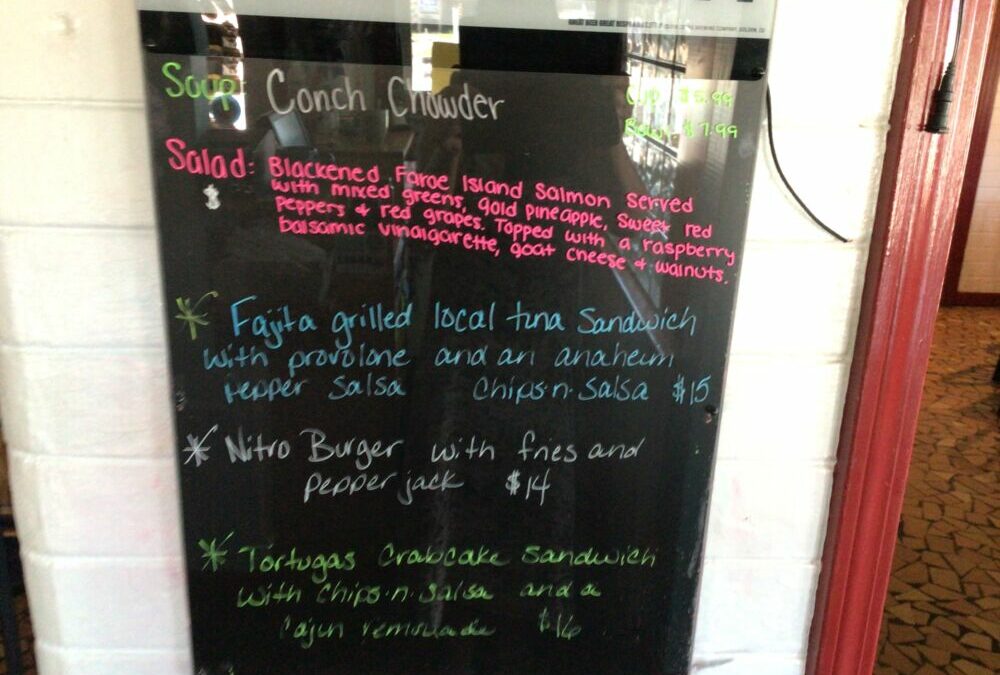 GREAT BEER GREAT RESPONSIBILITY
BREWING COMPANY, GOLDEN, CO
Soup Conch Chowder
Cup $5.99
Bowl $7.99
Salad: Blackened Faroe Island Salmon Served
$ with mixed greens, gold pineapple, sweet red
peppers & red grapes. Topped with a raspberry
balsamic vinaigarette, goat cheese & walnuts.
* Fajita grilled local tuna Sandwich
with provolone and an anaheim
pepper Salsa Chips-n-Salsa $15
* Nitro Burger with fries and
pepper jack $14
* Tortugas Crabcake Sandwich
with Chips-n-Salsa and a
Cajun remoulade $16